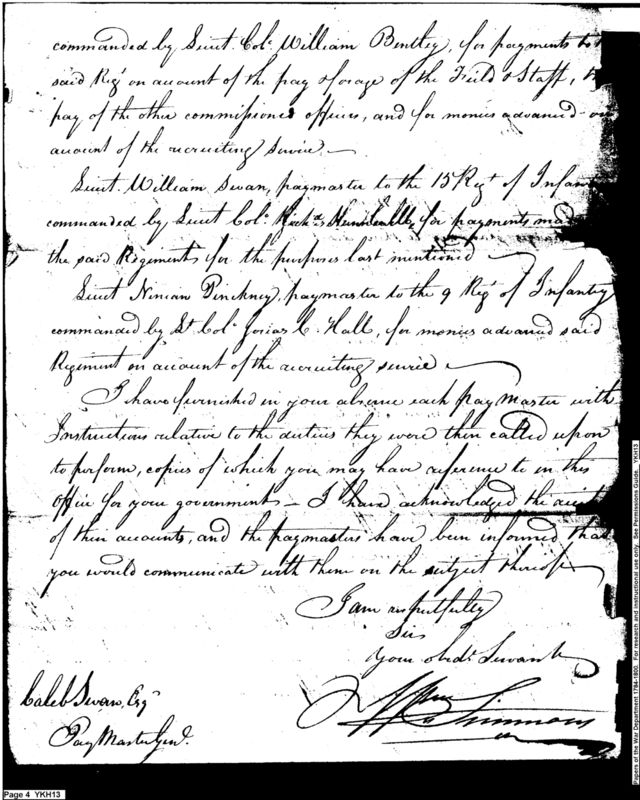 commanded by Lieut. Colo. William Bentley, for payments to
said Regt on account of the pay & forage of the Field & Staff, &
pay of the other commissioned officers, and for monies advanced on
account of the recruiting service —
Lieut. William Swan, paymaster to the 15 Regt of Infan
commanded by Lieut Colo. Richd for payments mad
the said Regiment for the purposes last mentioned —
Lieut Ninian Pinckney, paymaster to the 9 Regt of Infantry
commanded by Lt Colo. Josias C. Hall, for monies advanced said
Regiment on account of the recruiting service —
I have furnished in your absence each PayMaster with
Instructions relative to the duties they were then called upon
to perform, copies of which you may have reference to in this
Office for your government — I have acknowledged the
of their accounts, and the paymasters have been informed that
you would communicate with them on the subject thereof
I am respectfully
Sir
Your obdt Servant
Simmons
Caleb Swan, Esqr
Pay Master Genl.
Page 4 YKH13
Papers of the War Department 1784-1800. For research and instructional use only. See Permissions Guide. YKH13